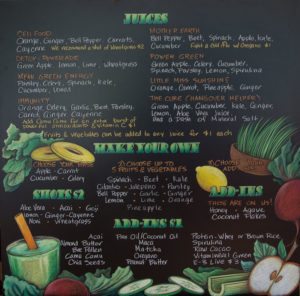 JUICES
CELL FOOD
Orange, Ginger, Bell Pepper, Carrots,
Cayenne We recommend a shot of Wheatgrass $2
DETOX
Green Apple, Lemon, Lime, Wheatgrass
MEAN GREEN ENERGY
Parsley, Celery, Spinach, Kale,
Cucumber, Lemon
IMMUNITY
Orange, Celery, Garlic, Beet, Parsley,
Carrot, Ginger, Cayenne
MOTHER EARTH
Bell Pepper, Beet, Spinach, Apple, Kale,
Cucumber
POWER GREEN
Green Apple, Celery, Cucumber,
Spinach, Parsley, Lemon, Spirulina
LITTLE MISS SUNSHINE
Orange, Carrot, Pineapple
THE CURE (HANGOVER HELPER)
Green Apple, Cucumber, Kale, Ginger,
Lemon, Aloe Vera Juice,
and a Dash of Mineral Salt
Fruits & Vegetables can be added to any juice for $1 each
MAKE YOUR OWN
1) CHOOSE YOUR BASE
Apple - Carrot
Cucumber
2) CHOOSE UP TO
5 FRUITS & VEGETABLES
Spinach - Beet - Kale
Cilantro - Jalapeno - Parsley
Bell Pepper - Garlic - Ginger
Lemon - Lime - Orange
Pineapple
SHOTS $2
Aloe Vera - Acai - Goji
Lemon - Ginger - Cayenne
Noni - Wheatgrass
ADD-INS
THESE ARE ON US!
Honey - Agave
Coconut Flakes
ADD-INS $1
Acai
Almond Butter
Bee Pollen
Camu Camu
Chia Seeds
Flax Oil/Coconut Oil
Maca
Matcha
Oregano
Peanut Butter
Protein - Whey or Brown Rice
Spirulina
Raw Cacao
VitaMineral Green